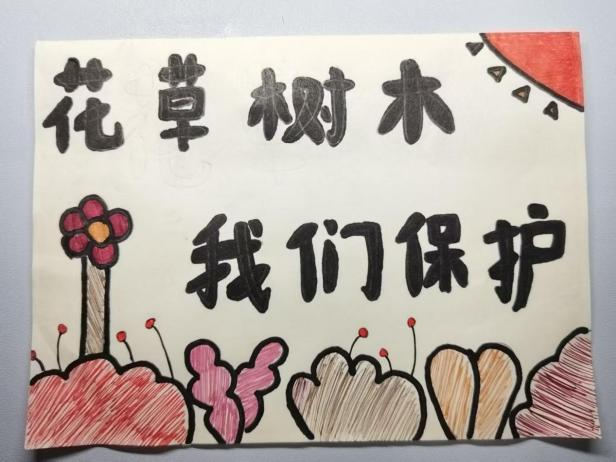 花草树木
我们保护